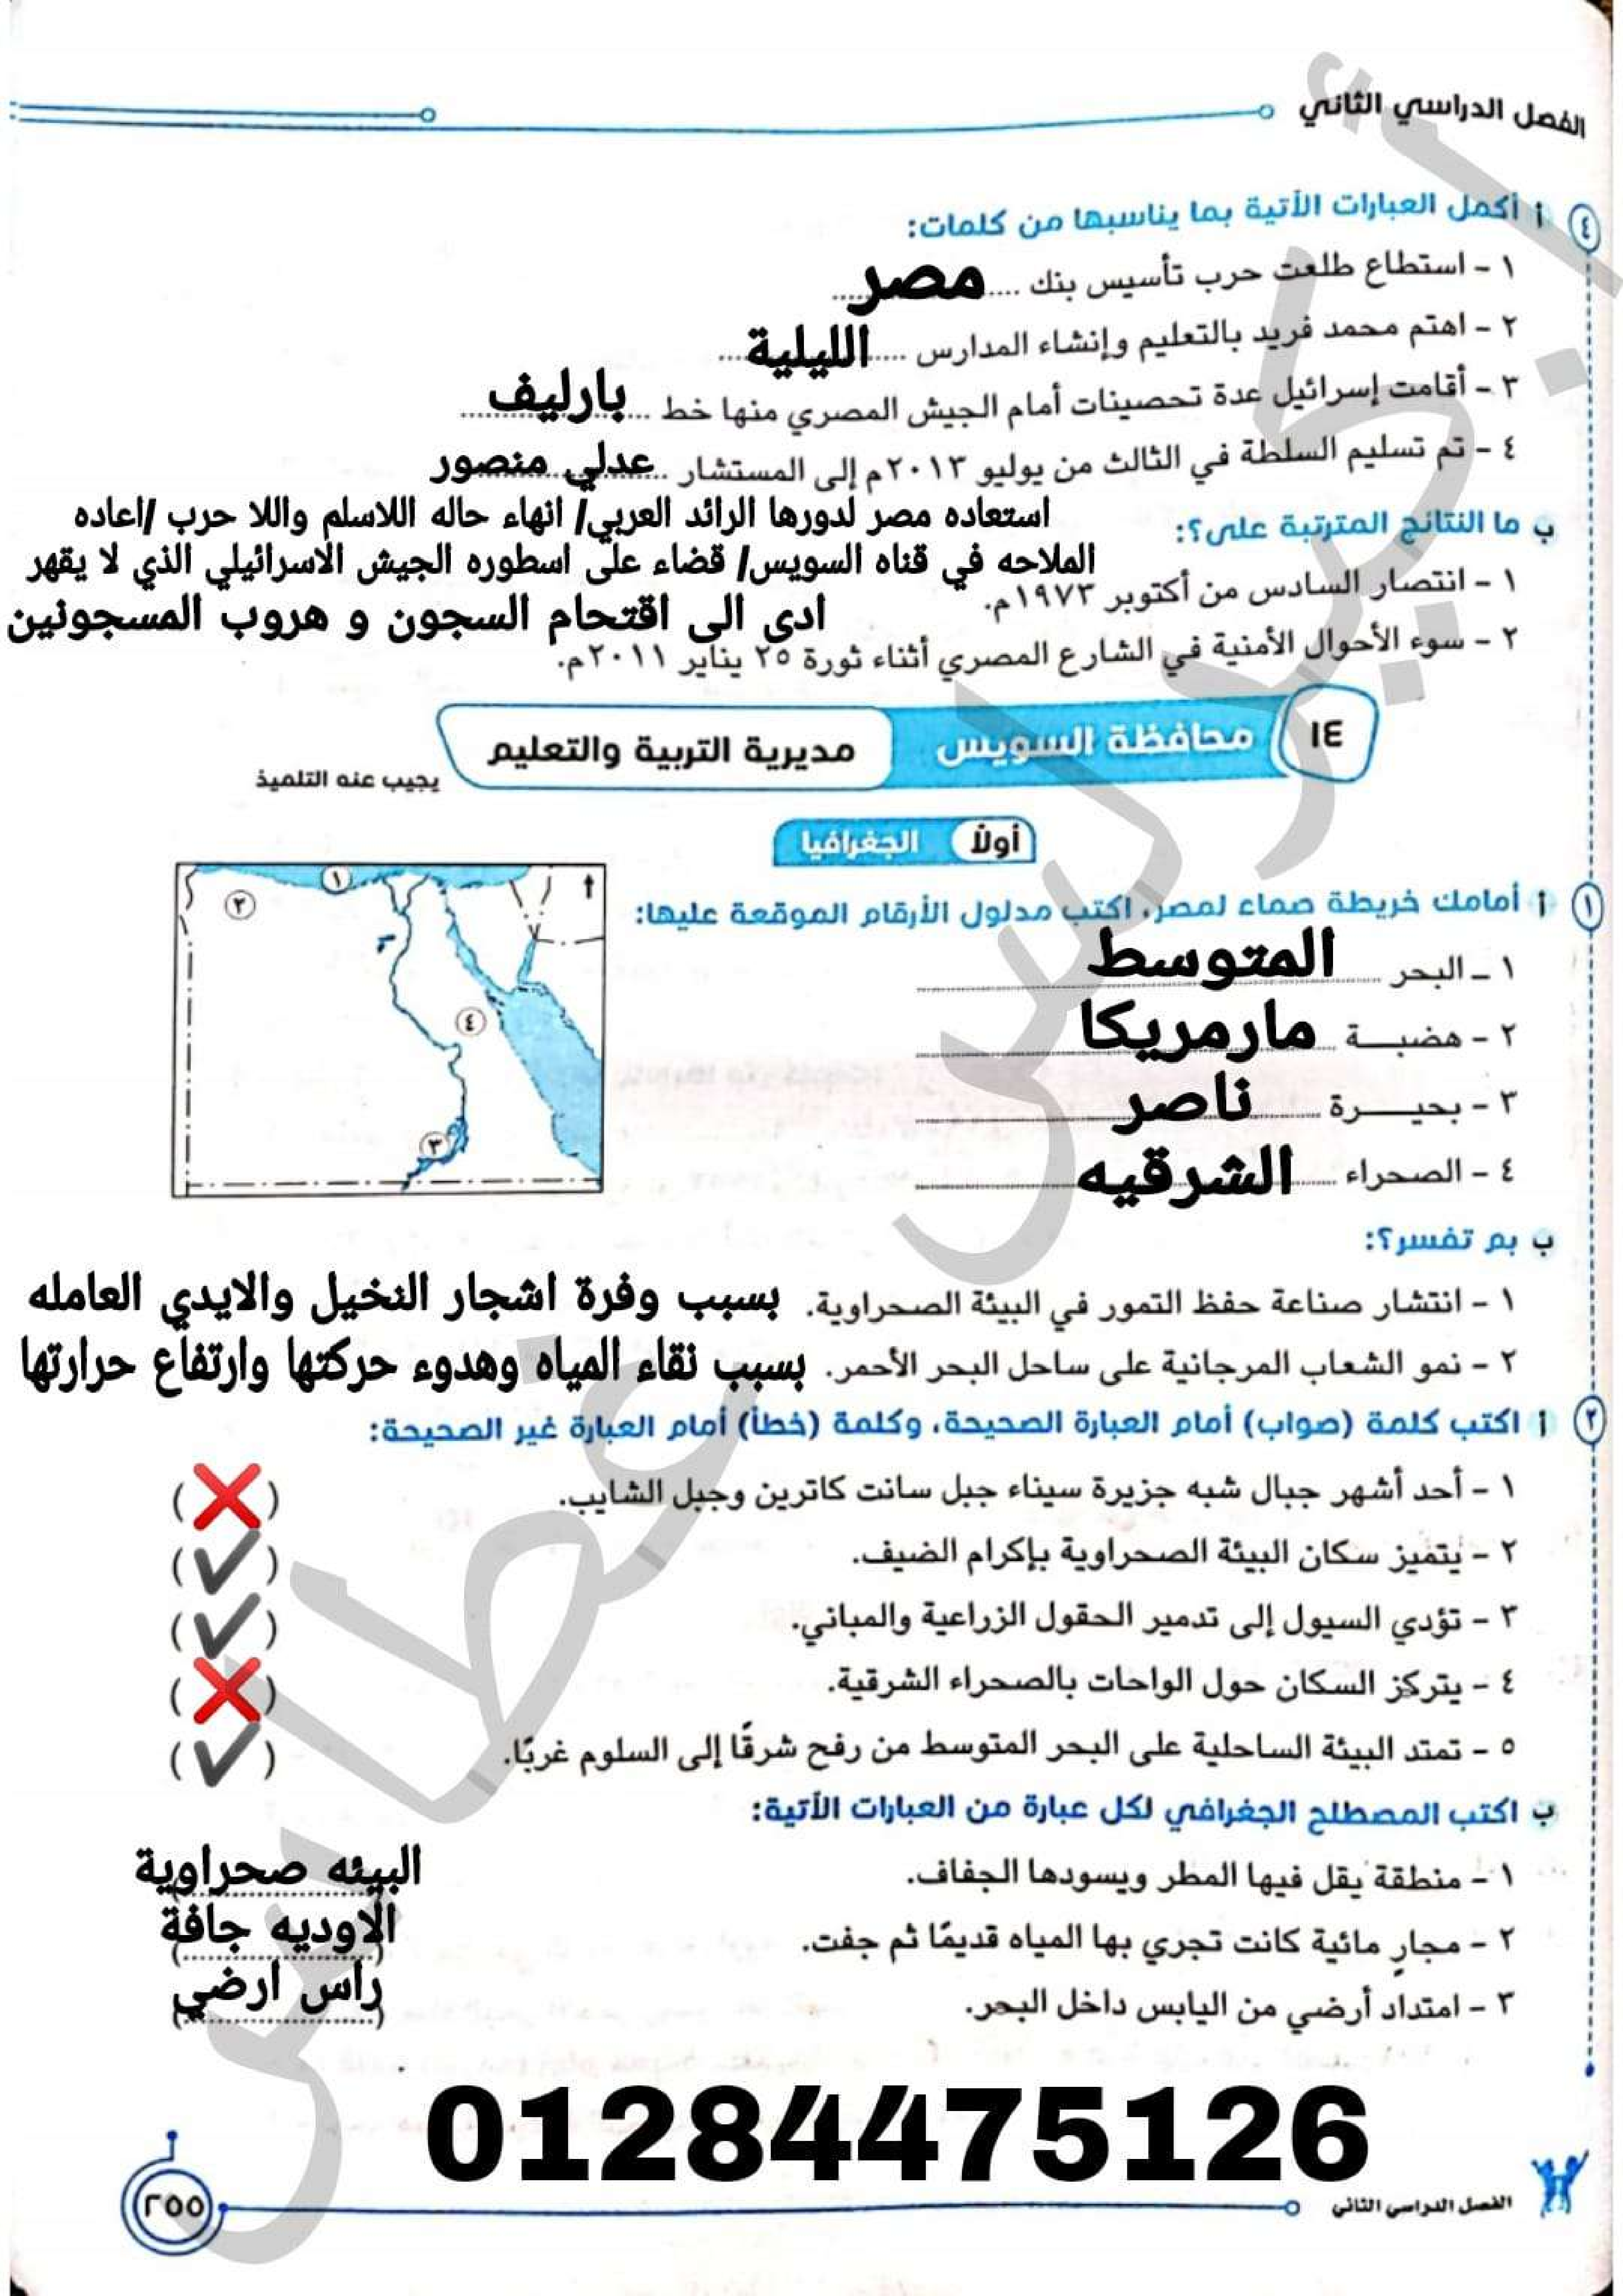 الفصل الدراسي الثاني
٤ أ أكمل العبارات الأتية بما يناسبها من كلمات:
١ - استطاع طلعت حرب تأسيس بنك ........ مصر
٢ - اهتم محمد فريد بالتعليم وإنشاء المدارس ........ الليلية
٣ - أقامت إسرائيل عدة تحصينات أمام الجيش المصري منها خط ........ بارليف
٤ - تم تسليم السلطة في الثالث من يوليو ٢٠١٣م إلى المستشار ........ عدلي منصور
ب ما النتائج المترتبة على؟:
استعاده مصر لدورها الرائد العربي/ انهاء حاله اللاسلم واللا حرب /اعاده
الملاحه في قناه السويس/ قضاء على اسطوره الجيش الاسرائيلي الذي لا يقهر
١ - انتصار السادس من أكتوبر ١٩٧٣م.
ادى الى اقتحام السجون و هروب المسجونين
٢ - سوء الأحوال الأمنية في الشارع المصري أثناء ثورة ٢٥ يناير ٢٠١١م.
١٤ محافظة السويس مديرية التربية والتعليم
يجيب عنه التلميذ
أولاً الجغرافيا
١ أ أمامك خريطة صماء لمصر، اكتب مدلول الأرقام الموقعة عليها:
١ ـ البحر ........ المتوسط
٢ - هضبـــة ........ مارمريكا
٣ - بحيـــــرة ........ ناصر
٤ - الصحراء ........ الشرقيه
١
٢
٤
٣
ب بم تفسر؟:
١ - انتشار صناعة حفظ التمور في البيئة الصحراوية. بسبب وفرة اشجار النخيل والايدي العامله
٢ - نمو الشعاب المرجانية على ساحل البحر الأحمر. بسبب نقاء المياه وهدوء حركتها وارتفاع حرارتها
٢ أ اكتب كلمة (صواب) أمام العبارة الصحيحة، وكلمة (خطأ) أمام العبارة غير الصحيحة:
١ - أحد أشهر جبال شبه جزيرة سيناء جبل سانت كاترين وجبل الشايب. (❌)
٢ - يتميز سكان البيئة الصحراوية بإكرام الضيف. (✔)
٣ - تؤدي السيول إلى تدمير الحقول الزراعية والمباني. (✔)
٤ - يتركز السكان حول الواحات بالصحراء الشرقية. (❌)
٥ - تمتد البيئة الساحلية على البحر المتوسط من رفح شرقًا إلى السلوم غربًا. (✔)
ب اكتب المصطلح الجغرافي لكل عبارة من العبارات الأتية:
١ - منطقة يقل فيها المطر ويسودها الجفاف. البيئه صحراوية
٢ - مجارٍ مائية كانت تجري بها المياه قديمًا ثم جفت. الاوديه جافة
٣ - امتداد أرضي من اليابس داخل البحر. راس ارضي
01284475126
الفصل الدراسي الثاني
٢٥٥